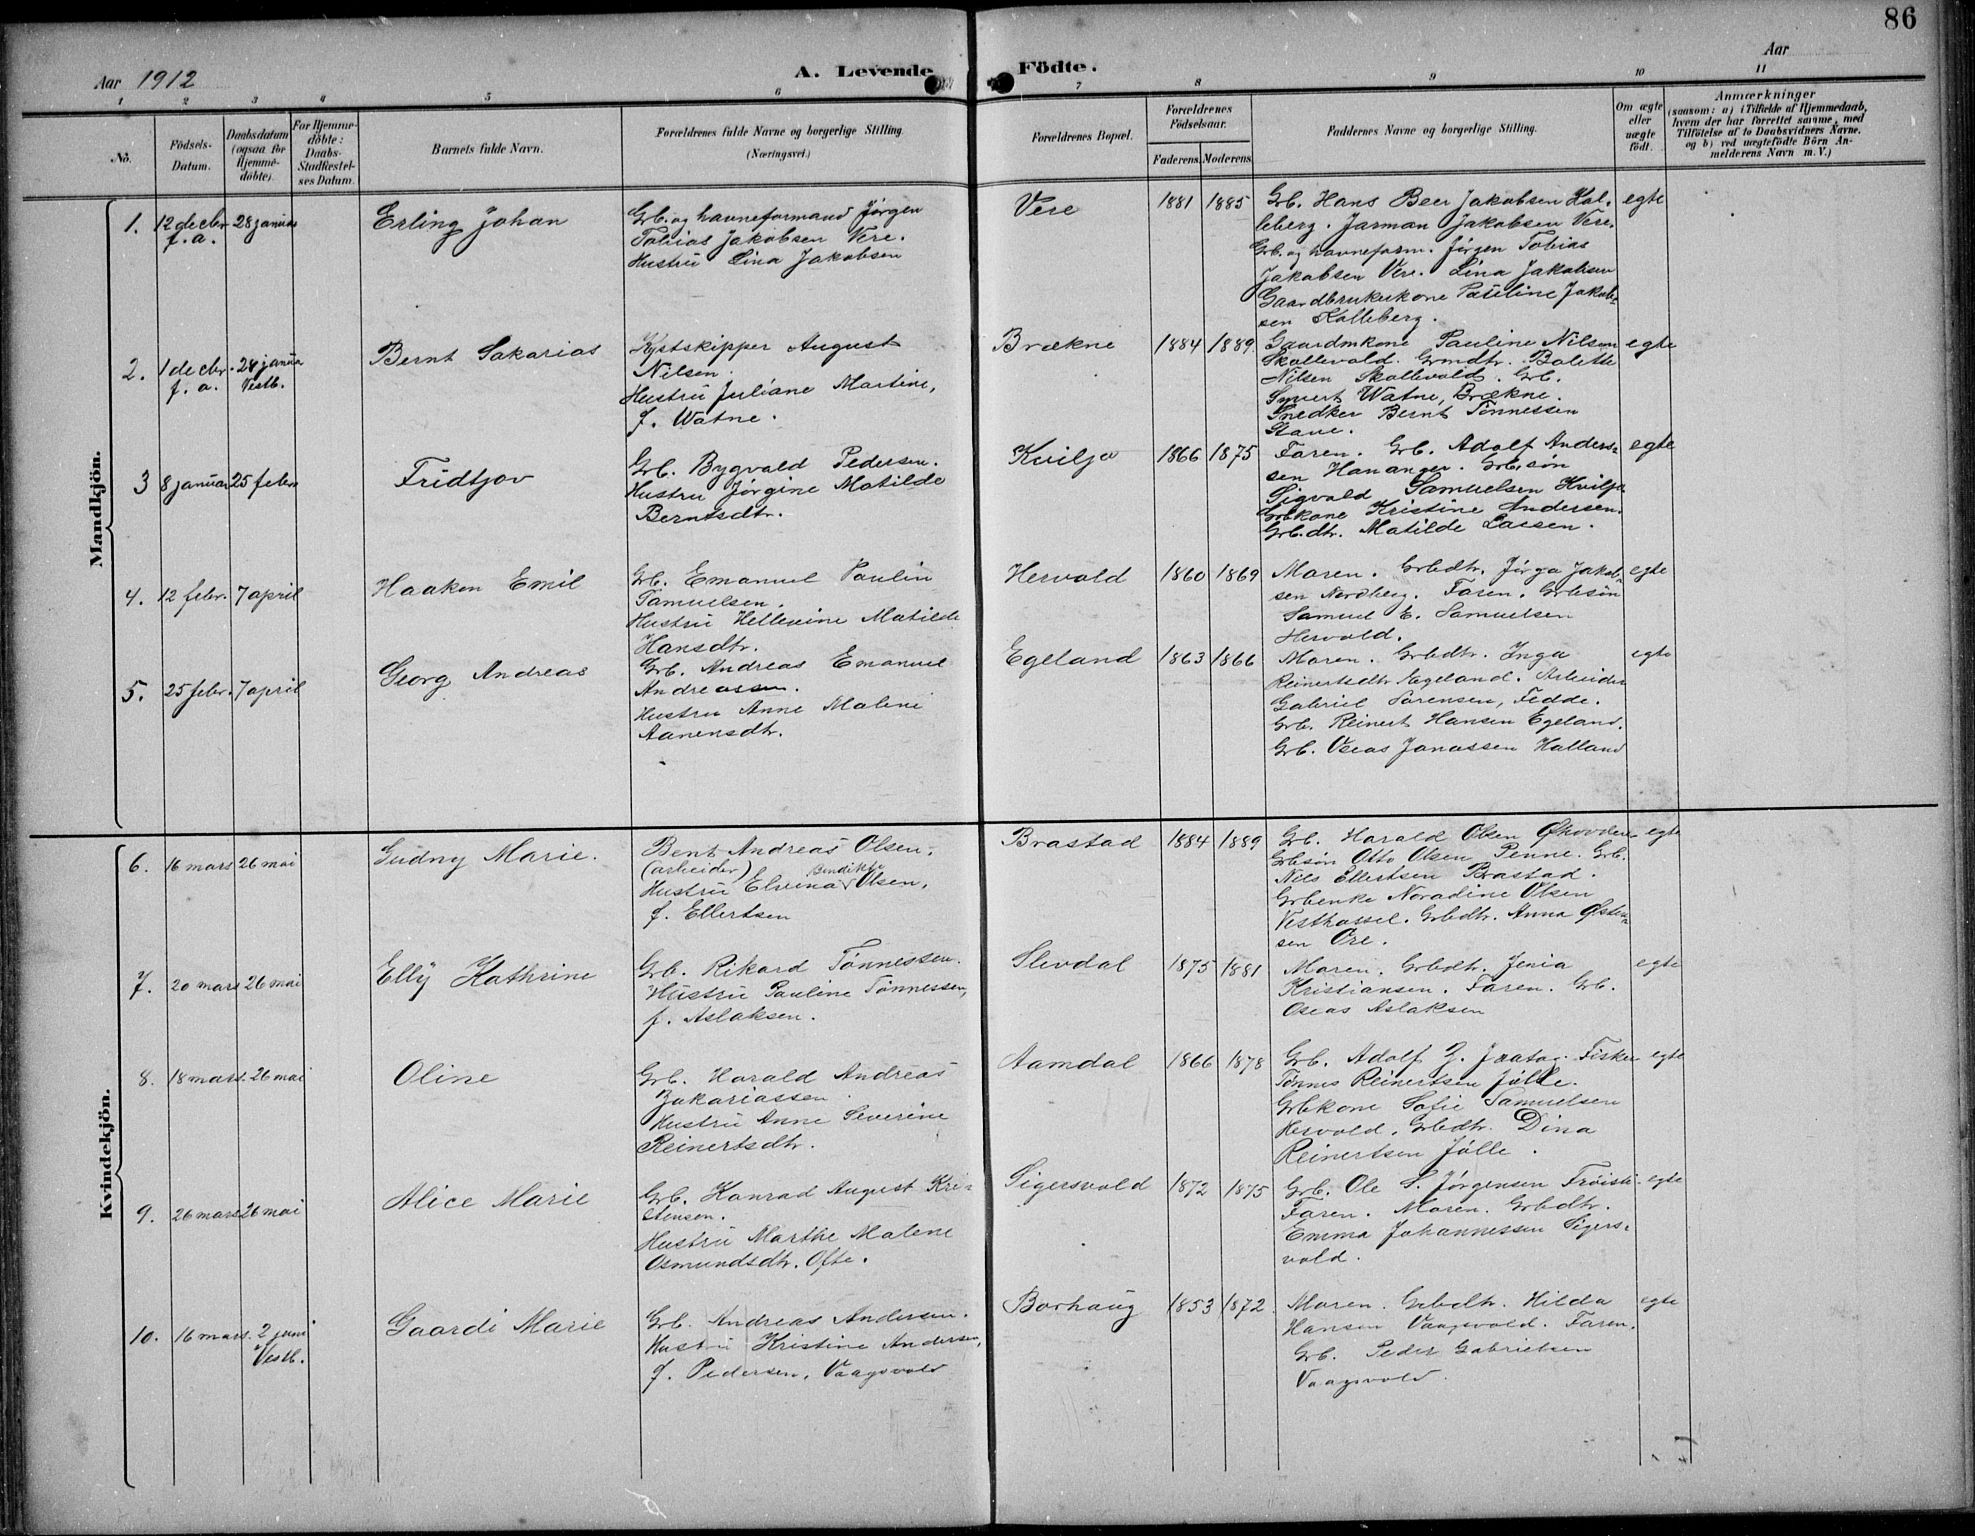 86
Aar 1912
A. Levende Födte.
Aar
1 2 3 4 5 6 7 8 9 10 11
No.
Födsels-
Datum.
Daabsdatum
(ogsaa for
Hjemme-
döbte).
For Hjemme-
döbte:
Daabs-
Stadfestel-
ses Datum.
Barnets fulde Navn.
Forældrenes fulde Navne og borgerlige Stilling.
(Næringsvei.)
Forældrenes Bopæl.
Forældrenes
Fødselsaar.
Faderens. Moderens.
Faddernes Navne og borgerlige Stilling.
Om ægte
eller
uægte
født.
Anmærkninger
(saasom: a) i Tilfælde af Hjemmedaab,
hvem der har forrettet samme, med
Tilföielse af to Daabsvidners Navne,
og b) ved uægtefödte Börn An-
melderens Navn m. V.)
Mandkjön.
1. 12 decbr. 28 januar
f. a.
Erling Johan
Grb. og havneformand Jørgen
Tobias Jakobsen Vere.
Hustru Lina Jakobsen
Vere
1881 1885
Grb. Hans Beer Jakobsen Kal-
leberg. Jarman Jakobsen Vere.
Grb. og havneform. Jørgen Tobias
Jakobsen Vere. Lina Jakobsen
Gaardbrukerkone Pauline Jakob-
sen Kalleberg.
egte
2. 1 decbr. 28 janua
f. a. Vestb.
Bernt Sakarias
Kystskipper August
Nilsen.
Hustru Juliane Martine,
f. Watne.
Brækne
1884 1889
Gaardmkone Pauline Nilsen
Skollevold. Grmdtr. Bolette
Nilsen Skollevold. Grb.
Syvert Watne, Brækne.
Snedker Bernt Tønnessen
Stave.
egte
3 8 januar 25 febr.
Fridtjov
Grb. Bygvald Pedersen.
Hustru Jørgine Matilde
Berntsdtr.
Kviljo
1866 1875
Faren. Grb. Adolf Anders-
sen Hananger. Grb.søn
Sigvald Samuelsen Kvilje
Grbkone Kristine Andersen.
Grb.dtr. Matilde Lassen.
egte
4. 12 febr. 7 april
Haakon Emil
Grb. Emanuel Paulin
Samuelsen.
Hustru Hellevine Matilde
Hansdtr.
Hervold
1860 1869
Moren. Grbdtr. Jørga Jakob-
sen Nordberg. Faren. Grbsøn
Samuel E. Samuelsen
Hervold.
egte
5. 25 febr. 7 april
Georg Andreas
Grb. Andreas Emanuel
Andreassen.
Hustru Anne Malene
Aanensdtr.
Egeland
1863 1866
Moren. Grbdtr. Inga
Reinertsdtr Egeland. Arbeider
Gabriel Sørensen, Fedde.
Grb. Reinert Hansen Egeland.
Grb. Oseas Jonassen Halland
egte
Kvindekjön.
6. 16 mars 26 mai
Gudny Marie.
Bent Andreas Olsen,
(arbeider) Bendikte
Hustru Elvina Olsen,
f. Ellertsen
Brastad
1884 1889
Grb. Harald Olsen
Grbsøn Otto Olsen Penne. Grb.
Nils Ellertsen Brastad.
Grbenke Noradine Olsen
Vesthassel. Grbdtr. Anna Østen-
sen Øre.
egte
7. 20 mars 26 mai
Elly Kathrine
Grb. Rikard Tønnessen.
Hustru Pauline Tønnessen,
f. Aslaksen.
Slevdal
1875 1881
Moren. Grbdtr. Jenia
Kristiansen. Faren. Grb.
Oseas Aslaksen
egte
8. 18 mars. 26 mai
Oline
Grb. Harald Andreas
Zakariassen.
Hustru Anne Severine
Reinertsdtr.
Aamdal
1866 1878
Grb. Adolf Z. Jaatog. Fisker
Tønnes Reinertsen Jølle.
Grbkone Sofie Samuelsen
Hervold. Grbdtr. Dina
Reinertsen Jølle.
egte
9. 26 mars 26 mai
Alice Marie
Grb. Konrad August Kri-
stensen.
Hustru Marthe Malene
Osmundsdtr. Ofte.
Sigersvold
1872 1875
Grb. Ole S. Jørgensen
Faren. Moren. Grbdtr.
Emma Johannessen Sigers-
vold.
egte
10. 16 mars. 2 juni
Vestb.
Gaardi Marie
Grb. Andreas Andersen.
Hustru Kristine Andersen,
f. Pedersen, Vaagsvold
Borhaug
1853 1872
Moren. Grbdtr. Hilda
Hansen Vaagsvold. Faren.
Grb. Peder Gabrielsen
Vaagsvold.
egte